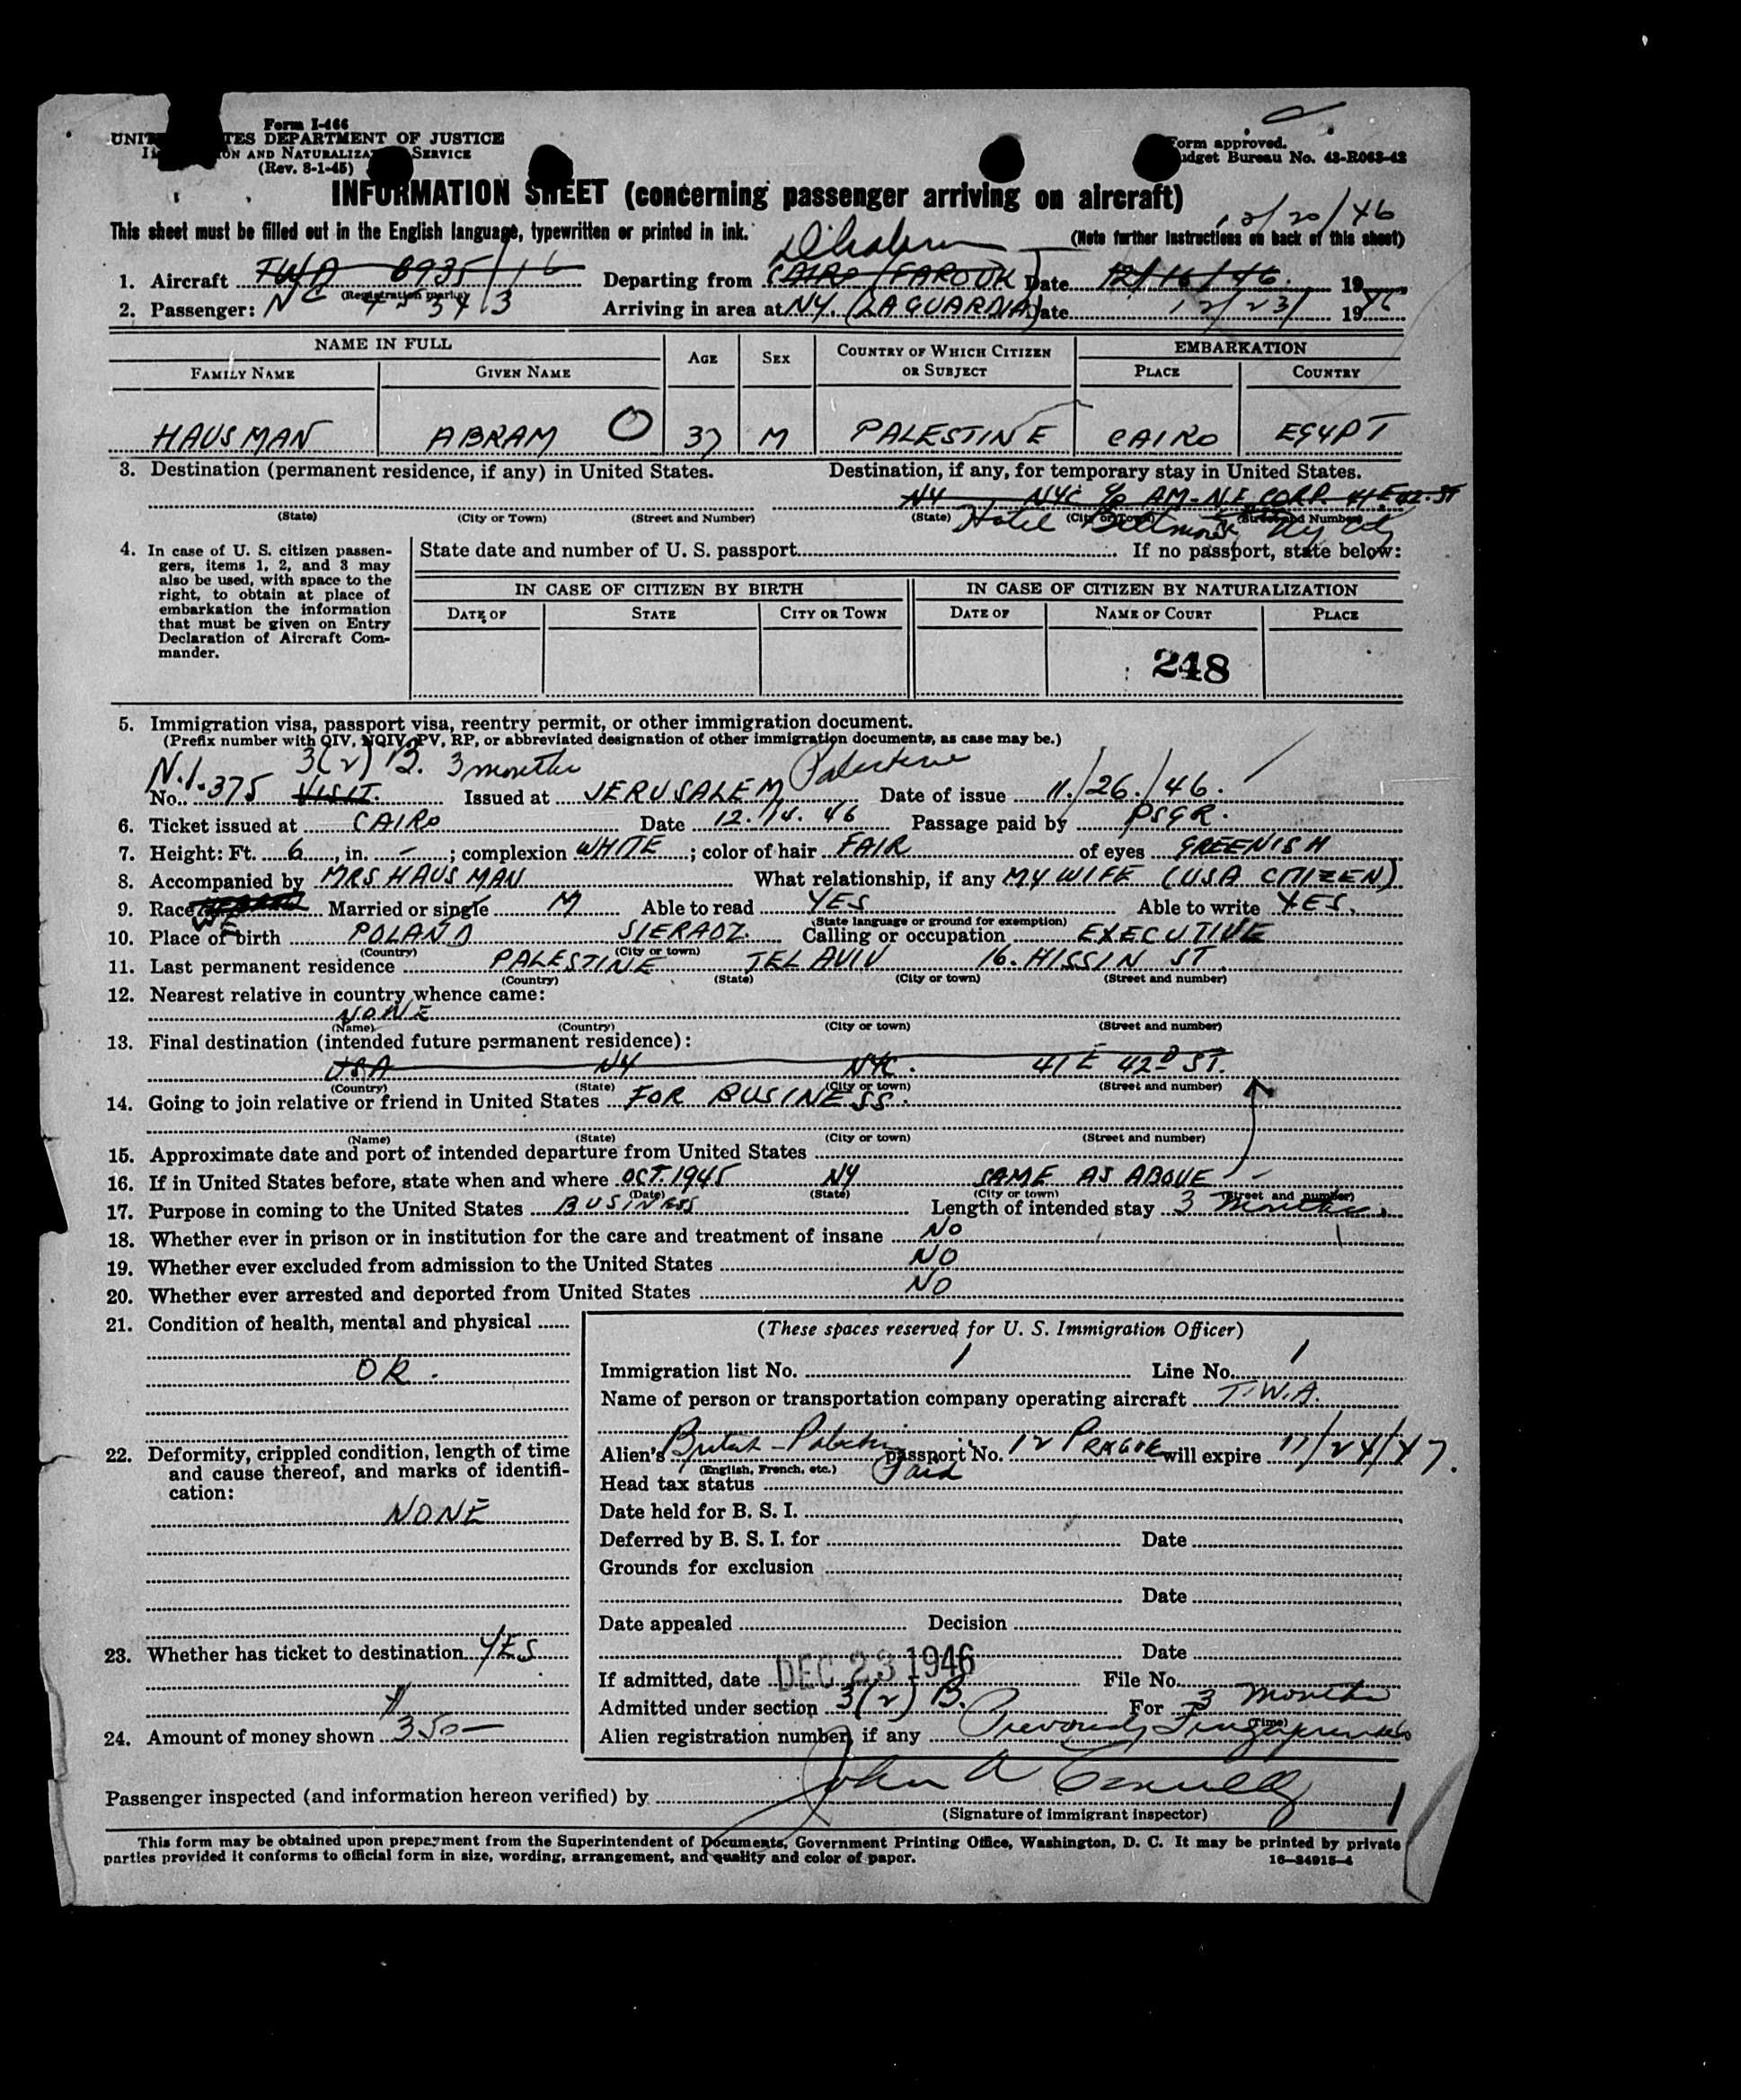 Form I-466
UNIT TES DEPARTMENT OF JUSTICE
ON AND NATURALIZA SERVICE
(Rev. 8-1-45)
Form approved.
Budget Bureau No. 43-R063-42
INFORMATION SHEET (concerning passenger arriving on aircraft)
12/20/46
This sheet must be filled out in the English language, typewritten or printed in ink.
(Note further instructions on back of this sheet)
1. Aircraft TWA 6935/16 Departing from CAIRO (FAROUK) Date 12/16/46. 19
(Registration marks)
2. Passenger: NC Arriving in area at NY. (LA GUARDIA) Date 12/23/ 1946
NAME IN FULL AGE SEX COUNTRY OF WHICH CITIZEN OR SUBJECT EMBARKATION
FAMILY NAME GIVEN NAME PLACE COUNTRY
HAUSMAN ABRAM O 37 M PALESTINE CAIRO EGYPT
3. Destination (permanent residence, if any) in United States. Destination, if any, for temporary stay in United States.
NY NYC c/o AM-N.E CORP. 41 E 42. ST
(State) (City or Town) (Street and Number) (State) (City or Town) (Street and Number)
Hotel Biltmore Ny City
4. In case of U. S. citizen passengers, items 1, 2, and 3 may also be used, with space to the right, to obtain at place of embarkation the information that must be given on Entry Declaration of Aircraft Commander.
State date and number of U. S. passport If no passport, state below:
IN CASE OF CITIZEN BY BIRTH IN CASE OF CITIZEN BY NATURALIZATION
DATE OF STATE CITY OR TOWN DATE OF NAME OF COURT PLACE
248
5. Immigration visa, passport visa, reentry permit, or other immigration document.
(Prefix number with QIV, NQIV, PV, RP, or abbreviated designation of other immigration documents, as case may be.)
3(2) B. 3 months Palestine
No. N.I.375 VISIT. Issued at JERUSALEM Date of issue 11./26./46.
6. Ticket issued at CAIRO Date 12./14. 46 Passage paid by PSGR.
7. Height: Ft. 6, in. - ; complexion WHITE ; color of hair FAIR of eyes GREENISH
8. Accompanied by MRS HAUSMAN What relationship, if any MY WIFE (USA CITIZEN)
9. Race Married or single M Able to read YES Able to write YES.
(State language or ground for exemption)
10. Place of birth POLAND SIERADZ. Calling or occupation EXECUTIVE
(Country) (City or town)
11. Last permanent residence PALESTINE TEL AVIV 16. HISSIN ST.
(Country) (State) (City or town) (Street and number)
12. Nearest relative in country whence came:
NONE
(Name) (Country) (City or town) (Street and number)
13. Final destination (intended future permanent residence):
USA NY NYC. 41 E 42D ST.
(Country) (State) (City or town) (Street and number)
14. Going to join relative or friend in United States FOR BUSINESS.
(Name) (State) (City or town) (Street and number)
15. Approximate date and port of intended departure from United States
16. If in United States before, state when and where OCT. 1945 NY SAME AS ABOVE
(Date) (State) (City or town) (Street and number)
17. Purpose in coming to the United States BUSINESS Length of intended stay 3 months.
18. Whether ever in prison or in institution for the care and treatment of insane NO
19. Whether ever excluded from admission to the United States NO
20. Whether ever arrested and deported from United States NO
21. Condition of health, mental and physical
OK.
22. Deformity, crippled condition, length of time and cause thereof, and marks of identification:
NONE
23. Whether has ticket to destination YES
24. Amount of money shown 350—
(These spaces reserved for U. S. Immigration Officer)
Immigration list No. 1 Line No. 1
Name of person or transportation company operating aircraft T.W.A.
Alien's British-Palestin passport No. 12 PRAGUE will expire 11/24/47.
(English, French, etc.)
Head tax status Paid
Date held for B. S. I.
Deferred by B. S. I. for Date
Grounds for exclusion
Date
Date appealed Decision
Date
If admitted, date DEC 23 1946 File No.
Admitted under section 3(2) B. For 3 months
(Time)
Alien registration number, if any Previously Fingerprinted
Passenger inspected (and information hereon verified) by
(Signature of immigrant inspector)
This form may be obtained upon prepayment from the Superintendent of Documents, Government Printing Office, Washington, D. C. It may be printed by private
parties provided it conforms to official form in size, wording, arrangement, and quality and color of paper. 16—24915-4